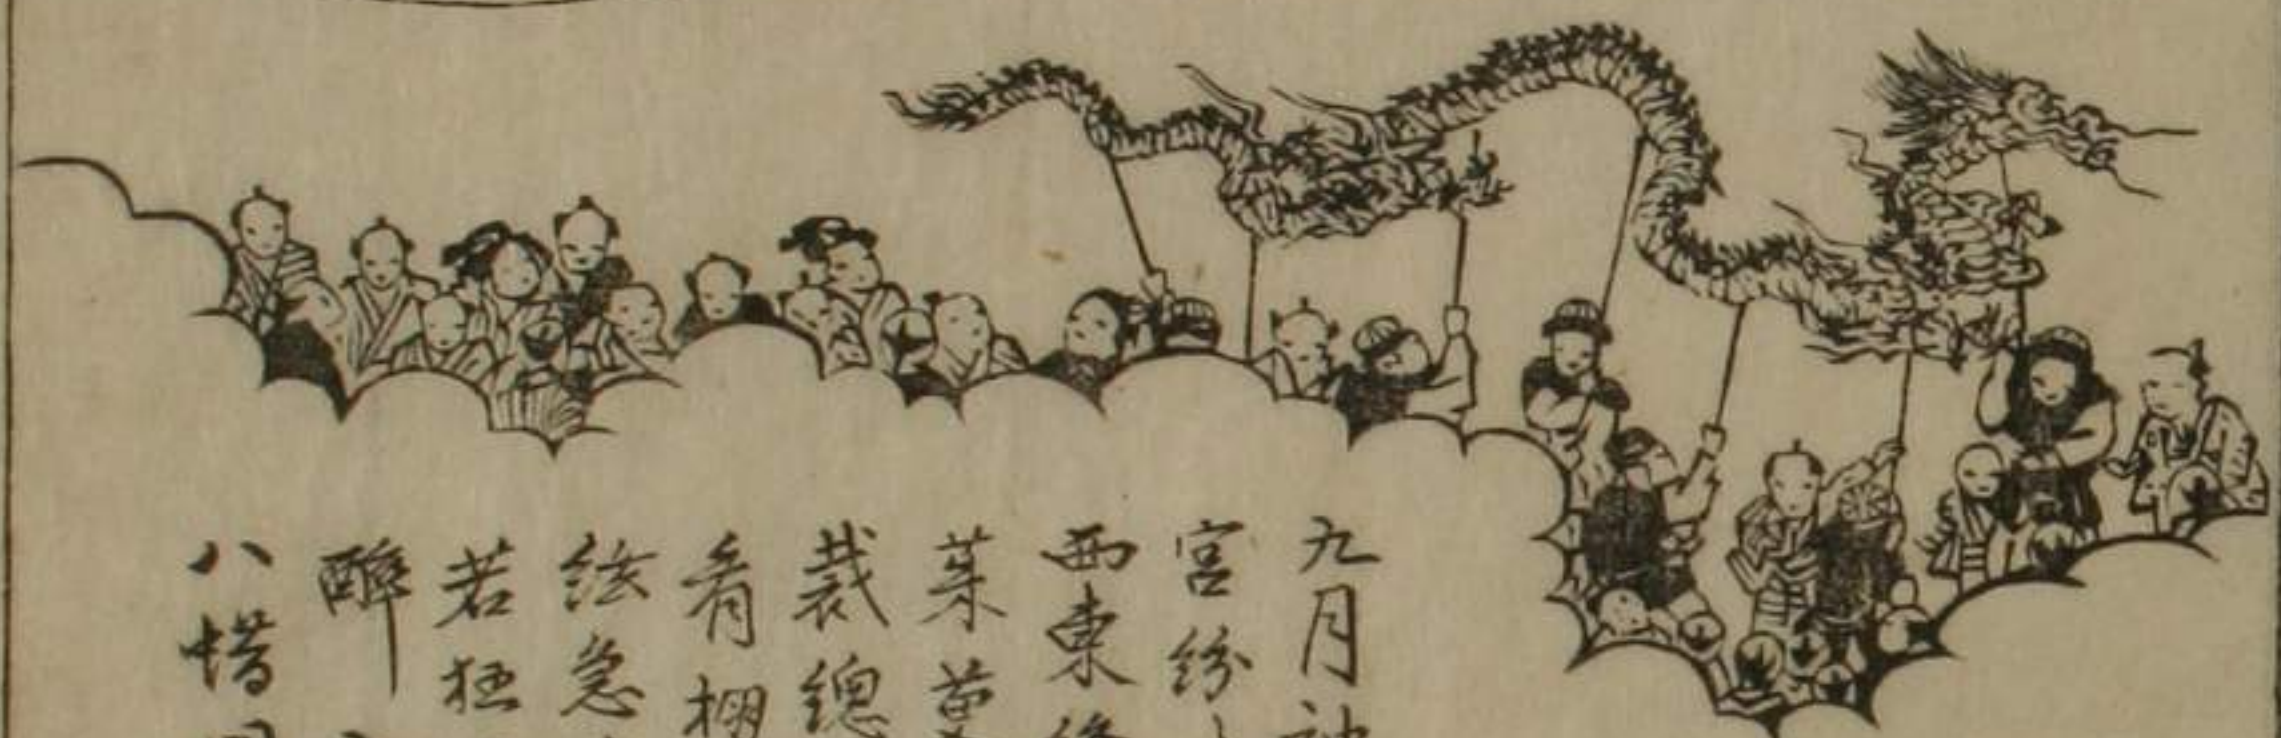 九月
宮紛
西東
茱萸
裁總
肴棚
絃急
若狂
醉
八惜